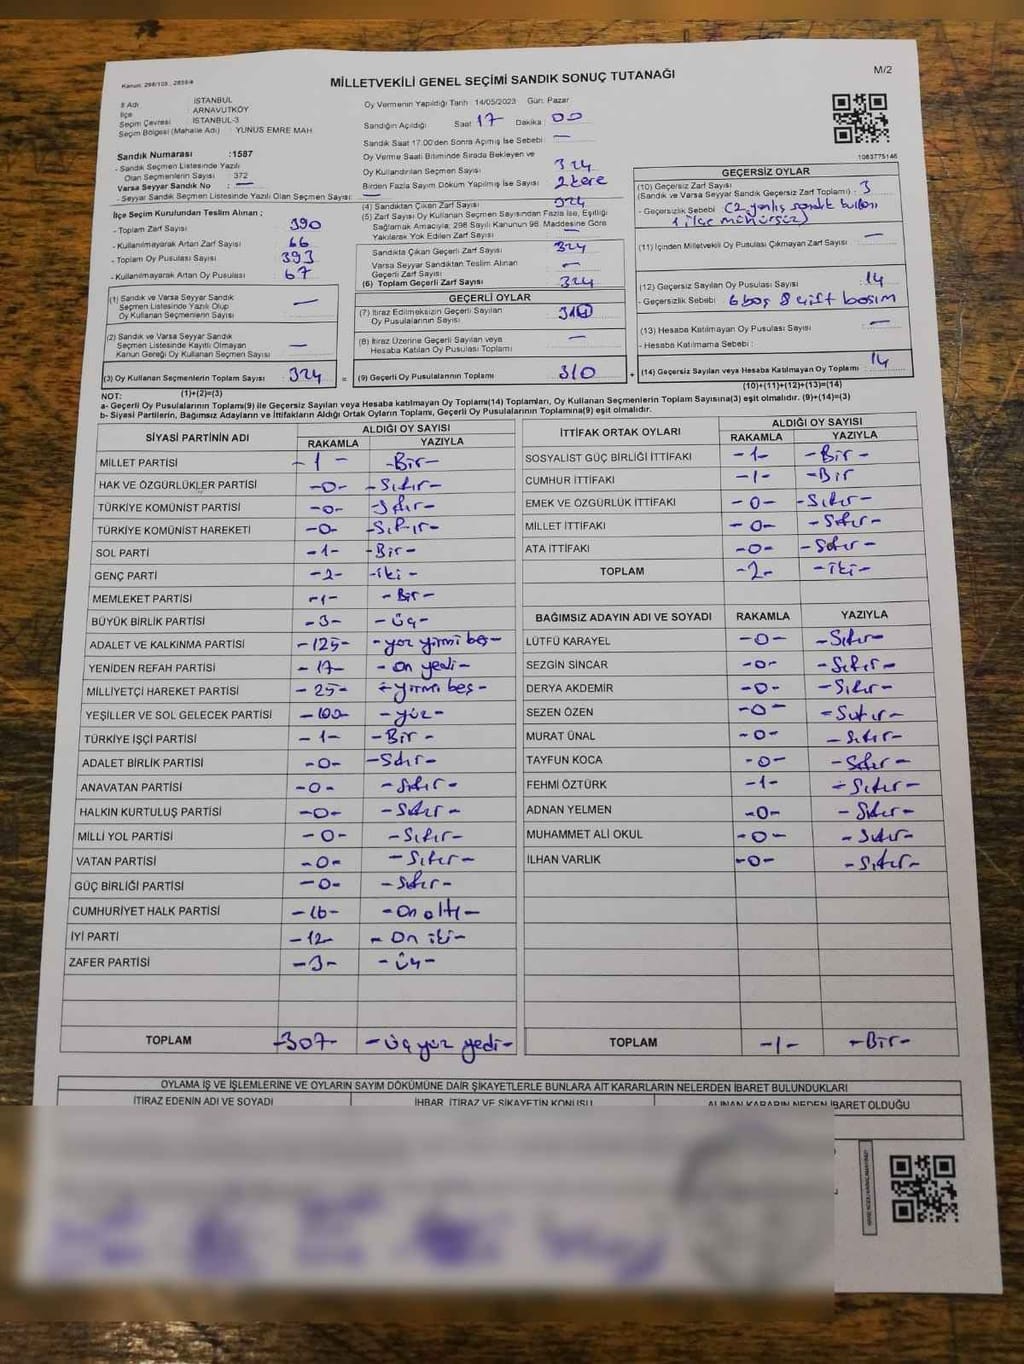 Kanun: 298/105 , 2839/
M/2
MİLLETVEKİLİ GENEL SEÇİMİ SANDIK SONUÇ TUTANAĞI
İl Adı : İSTANBUL
İlçe : ARNAVUTKÖY
Seçim Çevresi : İSTANBUL-3
Seçim Bölgesi (Mahalle Adı) : YUNUS EMRE MAH
Sandık Numarası :1587
- Sandık Seçmen Listesinde Yazılı
Olan Seçmenlerin Sayısı : 372
Varsa Seyyar Sandık No : —
- Seyyar Sandık Seçmen Listesinde Yazılı Olan Seçmen Sayısı: —
İlçe Seçim Kurulundan Teslim Alınan ;
- Toplam Zarf Sayısı : 390
- Kullanılmayarak Artan Zarf Sayısı : 66
- Toplam Oy Pusulası Sayısı : 393
- Kullanılmayarak Artan Oy Pusulası : 67
(1) Sandık ve Varsa Seyyar Sandık
Seçmen Listesinde Yazılı Olup
Oy Kullanan Seçmenlerin Sayısı —
(2) Sandık ve Varsa Seyyar Sandık
Seçmen Listesinde Kayıtlı Olmayan
Kanun Gereği Oy Kullanan Seçmen Sayısı —
(3) Oy Kullanan Seçmenlerin Toplam Sayısı 324
(1)+(2)=(3)
Oy Vermenin Yapıldığı Tarih 14/05/2023 Gün: Pazar
Sandığın Açıldığı Saat 17 Dakika : 00
Sandık Saat 17.00'den Sonra Açılmış İse Sebebi : —
Oy Verme Saati Bitiminde Sırada Bekleyen ve
Oy Kullandırılan Seçmen Sayısı 324
Birden Fazla Sayım Döküm Yapılmış İse Sayısı 2 kere
(4) Sandıktan Çıkan Zarf Sayısı 324
(5) Zarf Sayısı Oy Kullanan Seçmen Sayısından Fazla İse, Eşitliği
Sağlamak Amacıyla, 298 Sayılı Kanunun 98. Maddesine Göre
Yakılarak Yok Edilen Zarf Sayısı :
Sandıkta Çıkan Geçerli Zarf Sayısı 324
Varsa Seyyar Sandıktan Teslim Alınan
Geçerli Zarf Sayısı —
(6) Toplam Geçerli Zarf Sayısı 324
GEÇERLİ OYLAR
(7) İtiraz Edilmeksizin Geçerli Sayılan
Oy Pusulalarının Sayısı
(8) İtiraz Üzerine Geçerli Sayılan veya
Hesaba Katılan Oy Pusulası Toplamı —
= (9) Geçerli Oy Pusulalarının Toplamı 310 +
1083775146
GEÇERSİZ OYLAR
(10) Geçersiz Zarf Sayısı
(Sandık ve Varsa Seyyar Sandık Geçersiz Zarf Toplamı) : 3
- Geçersizlik Sebebi (2 yanlış sandık
1
(11) İçinden Milletvekili Oy Pusulası Çıkmayan Zarf Sayısı : —
(12) Geçersiz Sayılan Oy Pusulası Sayısı : 14
- Geçersizlik Sebebi : 6 boş 8 çift basım
(13) Hesaba Katılmayan Oy Pusulası Sayısı : —
- Hesaba Katılmama Sebebi :
(14) Geçersiz Sayılan veya Hesaba Katılmayan Oy Toplamı 14
(10)+(11)+(12)+(13)=(14)
NOT:
a- Geçerli Oy Pusulalarının Toplamı(9) ile Geçersiz Sayılan veya Hesaba katılmayan Oy Toplamı(14) Toplamları, Oy Kullanan Seçmenlerin Toplam Sayısına(3) eşit olmalıdır. (9)+(14)=(3)
b- Siyasi Partilerin, Bağımsız Adayların ve İttifakların Aldığı Ortak Oyların Toplamı, Geçerli Oy Pusulalarının Toplamına(9) eşit olmalıdır.
SİYASİ PARTİNİN ADI ALDIĞI OY SAYISI
RAKAMLA YAZIYLA
MİLLET PARTİSİ - 1 - - Bir -
HAK VE ÖZGÜRLÜKLER PARTİSİ -0- - Sıfır -
TÜRKİYE KOMÜNİST PARTİSİ -0- - Sıfır -
TÜRKİYE KOMÜNİST HAREKETİ -0- - Sıfır -
SOL PARTİ -1- - Bir -
GENÇ PARTİ -2- - iki -
MEMLEKET PARTİSİ -1- - Bir -
BÜYÜK BİRLİK PARTİSİ -3- - üç -
ADALET VE KALKINMA PARTİSİ -125- - yüz yirmi beş -
YENİDEN REFAH PARTİSİ -17- - on yedi -
MİLLİYETÇİ HAREKET PARTİSİ -25- - yirmi beş -
YEŞİLLER VE SOL GELECEK PARTİSİ -100- - yüz -
TÜRKİYE İŞÇİ PARTİSİ -1- - Bir -
ADALET BİRLİK PARTİSİ -0- - Sıfır -
ANAVATAN PARTİSİ -0- - Sıfır -
HALKIN KURTULUŞ PARTİSİ -0- - Sıfır -
MİLLİ YOL PARTİSİ -0- - Sıfır -
VATAN PARTİSİ -0- - Sıfır -
GÜÇ BİRLİĞİ PARTİSİ -0- - Sıfır -
CUMHURİYET HALK PARTİSİ -16- - On altı -
İYİ PARTİ -12- - On iki -
ZAFER PARTİSİ -3- - üç -
TOPLAM -307- - üç yüz yedi -
İTTİFAK ORTAK OYLARI ALDIĞI OY SAYISI
RAKAMLA YAZIYLA
SOSYALİST GÜÇ BİRLİĞİ İTTİFAKI -1- - Bir -
CUMHUR İTTİFAKI -1- - Bir
EMEK VE ÖZGÜRLÜK İTTİFAKI -0- - Sıfır -
MİLLET İTTİFAKI -0- - Sıfır -
ATA İTTİFAKI -0- - Sıfır -
TOPLAM -2- - iki -
BAĞIMSIZ ADAYIN ADI VE SOYADI RAKAMLA YAZIYLA
LÜTFÜ KARAYEL -0- - Sıfır -
SEZGİN SİNCAR -0- - Sıfır -
DERYA AKDEMİR -0- - Sıfır -
SEZEN ÖZEN -0- - Sıfır -
MURAT ÜNAL -0- - Sıfır -
TAYFUN KOCA -0- - Sıfır -
FEHMİ ÖZTÜRK -1- - Sıfır -
ADNAN YELMEN -0- - Sıfır -
MUHAMMET ALİ OKUL -0- - Sıfır -
İLHAN VARLIK -0- - Sıfır -
TOPLAM -1- - Bir -
OYLAMA İŞ VE İŞLEMLERİNE VE OYLARIN SAYIM DÖKÜMÜNE DAİR ŞİKAYETLERLE BUNLARA AİT KARARLARIN NELERDEN İBARET BULUNDUKLARI
İTİRAZ EDENİN ADI VE SOYADI İHBAR, İTİRAZ VE ŞİKAYETİN KONUSU ALINAN KARARIN NEDEN İBARET OLDUĞU